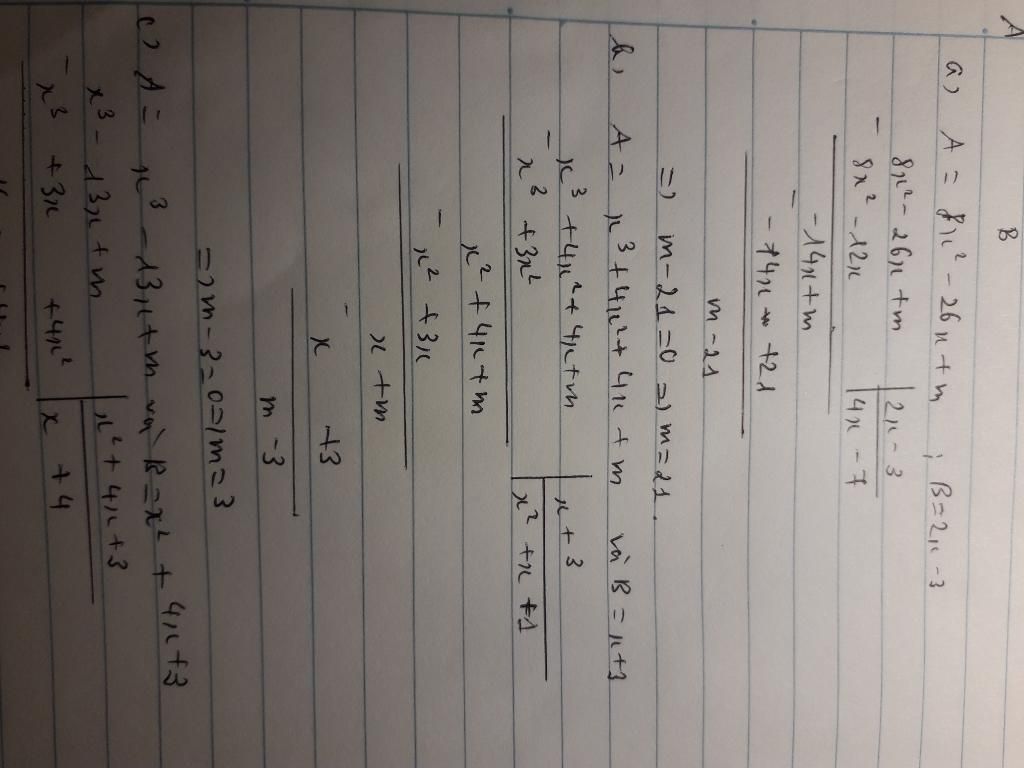 A
B
a) A = 8x² - 26x + m ; B = 2x - 3
8x² - 26x + m | 2x - 3
- 8x² - 12x | 4x - 7
- 14x + m
- - 14x + 21
m - 21
=> m - 21 = 0 => m = 21.
b, A = x³ + 4x² + 4x + m và B = x + 3
x³ + 4x² + 4x + m | x + 3
- x³ + 3x² | x² + x + 1
x² + 4x + m
- x² + 3x
x + m
- x + 3
m - 3
=> m - 3 = 0 => m = 3
c) A = x³ - 13x + m và B = x² + 4x + 3
x³ - 13x + m | x² + 4x + 3
- x³ + 3x + 4x² | x + 4